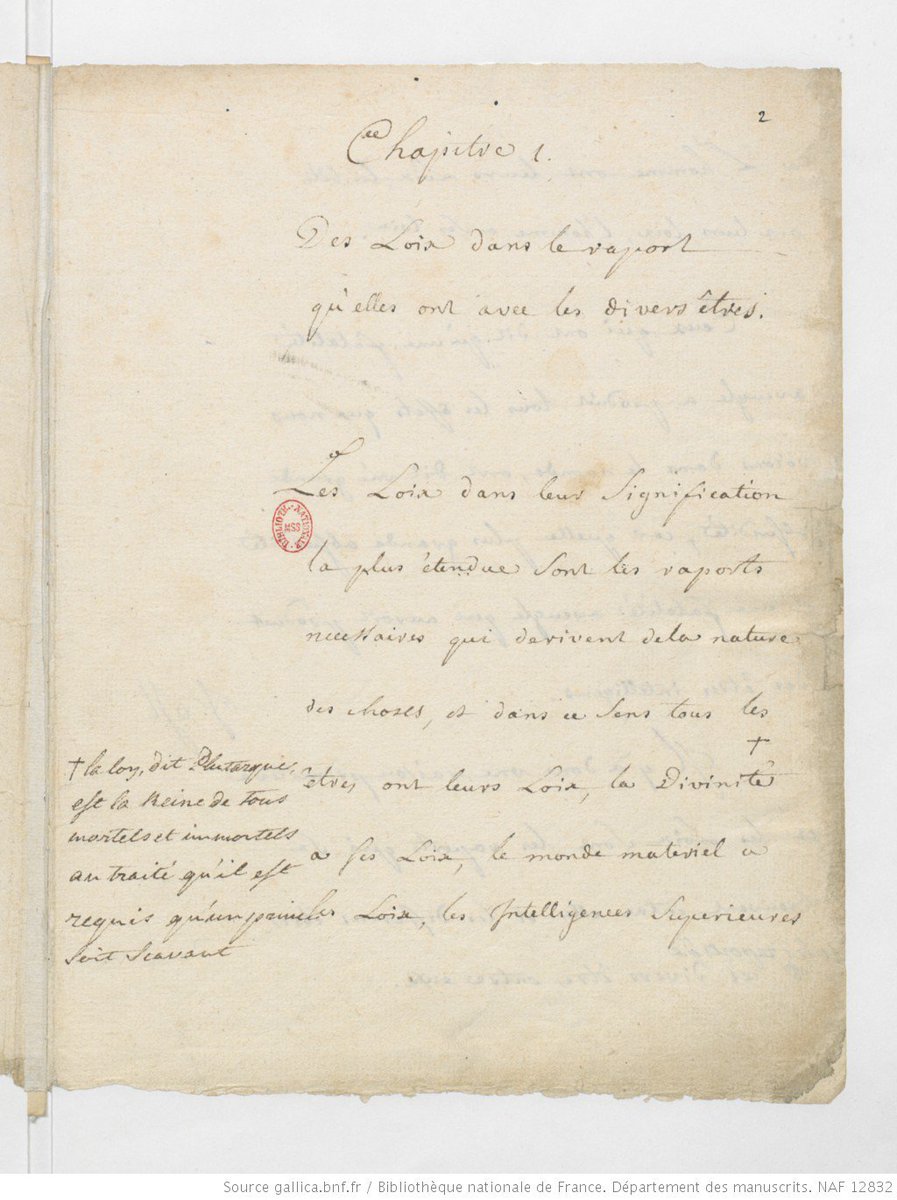 2
Chapitre 1.
Des Loix dans le raport
qu'elles ont avec les divers êtres.
Les Loix dans leur Signification
la plus étendue sont les raports
necessaires qui derivent dela nature
des choses, et dans ce sens tous les
êtres ont leurs Loix, la Divinité †
a ses Loix, le monde materiel a
ses Loix, les Intelligences Superieures
† la loy, dit Plutarque,
est la Reine de tous
mortels et immortels
au traité qu'il est
requis qu'un prince
soit scavant
BIBLIOTH. NATIONALE
MSS
Source gallica.bnf.fr / Bibliothèque nationale de France. Département des manuscrits. NAF 12832